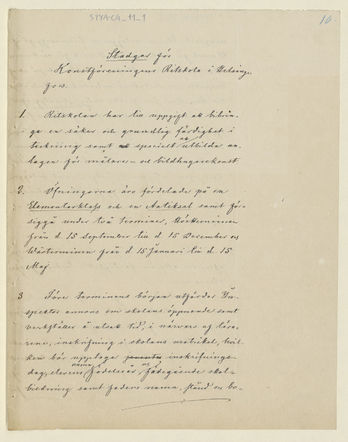 SIYACA_11_1
10.
Stadgar för
Konstföreningens Ritskola i Helsing-
fors.
1. Ritskolan har till uppgift att bibrin-
ga en säker och grundlig färdighet i
teckning samt att specielt utbilda an-
lagen för målare- och bildhuggerikonst
2. Öfningarna äro fördelade på en
Elementarklass och en Antiksal samt för-
siggå under två terminer, Höstterminen
från d. 15 September till d. 15 December och
Vårterminen från d 15 Januari till d. 15
Maj.
3 Före terminens början utfärdar In-
spektor annons om skolans öppnande samt
verkställer å utsatt tid, i närvaro af lära-
rene, inskrifning i skolans matrikel, hvil-
ken bör upptaga inskrifnings-
dag, elevens namn, födelseår, föregående skol-
bildning samt fadens namn, stånd och bo-